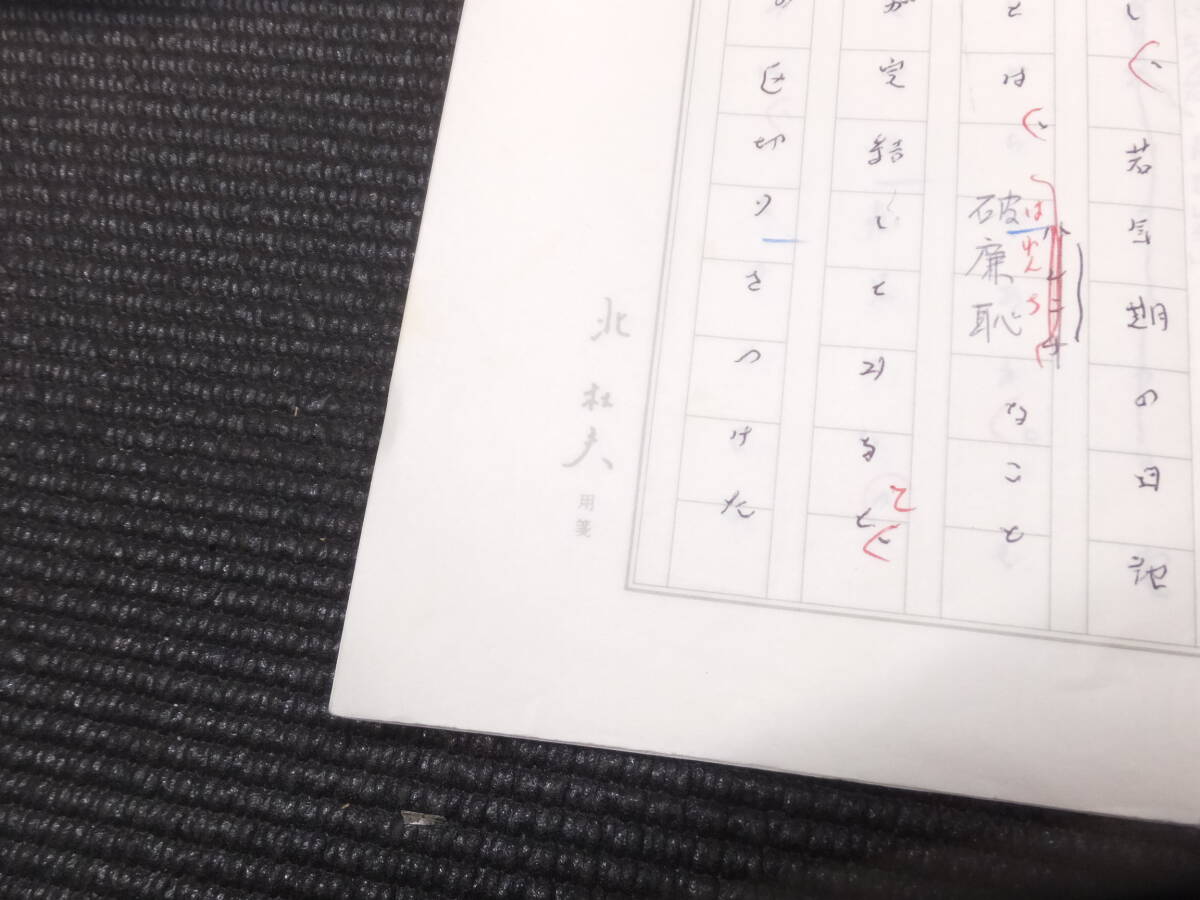 い、若気期の日記
とは、破廉恥なこと
はれんち
が完結しとるて、
の区切りをつけた
北杜夫
用箋